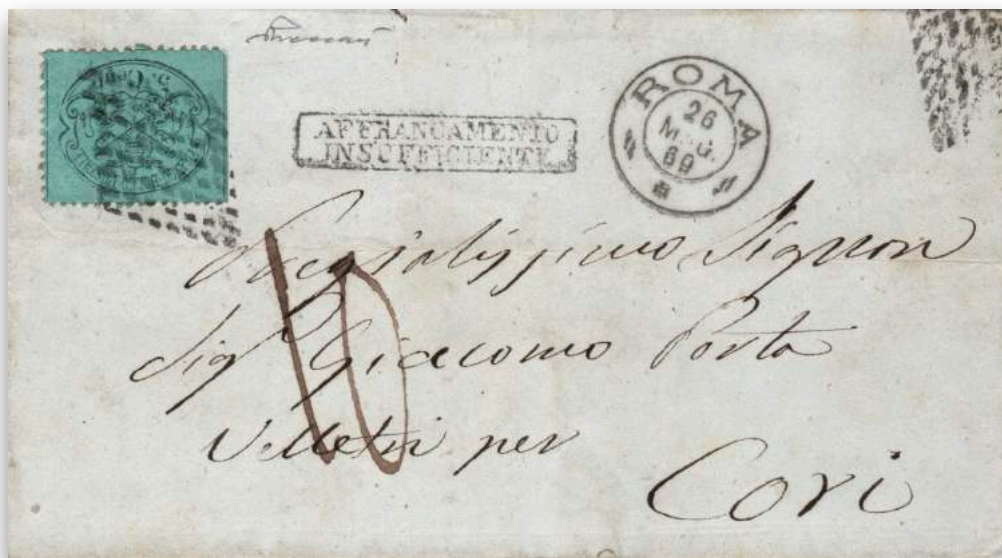 5 Cent.
AFFRANCAMENTO
INSUFFICIENTE
ROMA
26
MAG.
69
10
Pregiatissimo Signor
Sigr Giacomo Porta
Velletri per
Cori